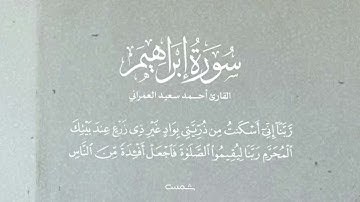 سُورَةُ إِبْرَاهِيم
القارئ أحمد سعيد العمراني
رَبَّنَآ إِنِّىٓ أَسْكَنتُ مِن ذُرِّيَّتِى بِوَادٍ غَيْرِ ذِى زَرْعٍ عِندَ بَيْتِكَ
ٱلْمُحَرَّمِ رَبَّنَا لِيُقِيمُوا۟ ٱلصَّلَوٰةَ فَٱجْعَلْ أَفْـِٔدَةً مِّنَ ٱلنَّاسِ